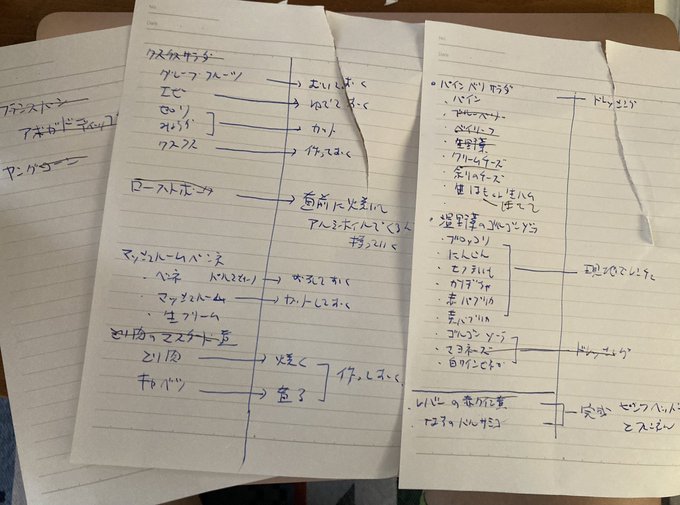 フランストーン
アボガドディップ
No.
Date
クスクスサラダ
グレープフルーツ → むいておく
エビ → ゆでておく
セロリ
みょうが → カット
クスクス → 作っておく
ローストポーク → 直前に焼いて
アルミホイルでくるんで
持っていく
マッシュルームペンネ
・ペンネ → ゆでておく
・マッシュルーム → カットしておく
・生クリーム
とり肉のマスタード煮
とり肉 → 焼く
キャベツ → 煮る
作っておく
No.
Date
・パインベリサラダ ドレッシング
・パイン
・ブルーベリー
・ベイリーフ
・生野菜
・クリームチーズ
・余りのチーズ
・生はもしくは生ハム
・温野菜のゴルゴンゾーラ
・ブロッコリ
・にんじん
・さつまいも
・カボチャ
・赤パプリカ
・黄パプリカ
現地でレンチン
・ゴルゴンゾーラ
・マヨネーズ ドレッシング
・白ワインビネガ
・レバーの赤ワイン煮
・なすのバルサミコ
完成